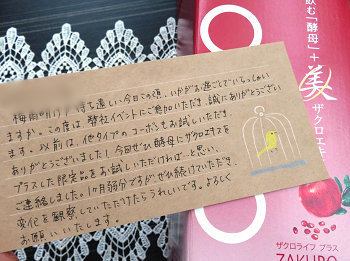 梅雨明けが待ち遠しい今日この頃、いかがお過ごしでいらっしゃい
ますか。この度は、弊社イベントにご参加いただき、誠にありがとうござい
ます。以前は、他タイプのコーボンをお試しいただき、
ありがとうございました！今回ぜひ酵母にザクロエキスを
プラスした限定品をお試しいただければ…と思い、
ご連絡しました。1ヶ月弱分ですがぜひ続けていただき、
変化を観察していただけたらうれしいです。よろしく
お願いいたします。
飲む「酵母」+
美
ザクロエキ
ザクロライフ プラス
ZAKURO